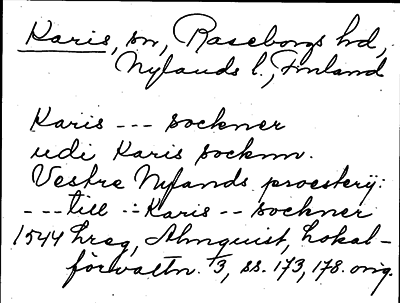 Karis, sn, Raseborgs hd,
Nylands l., Finland
Karis --- sockner
udi Karis socknn.
Vestre Nylands proesterij:
---till -:-Karis -- sockner
1544 hreg, Almquist, Lokal-
förvaltn. 1/3, ss. 173, 178. orig.